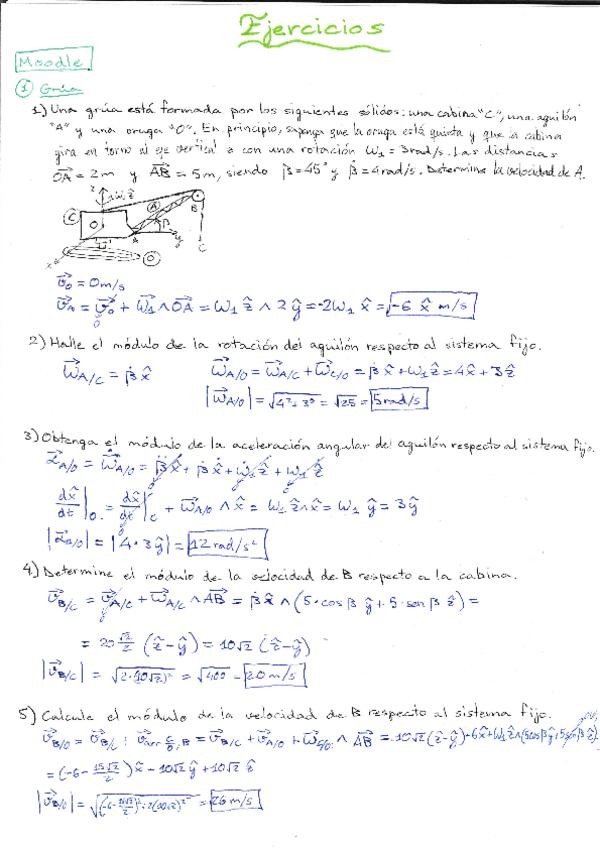 Ejercicios
Moodle
① Grúa
1) Una grúa está formada por los siguientes sólidos: una cabina "C", un aguilón
"A" y una oruga "O". En principio, suponga que la oruga está quieta y que la cabina
gira en torno al eje vertical z con una rotación ω₁ = 3 rad/s. Las distancias
OA = 2m y AB = 5m, siendo β = 45° y β̇ = 4 rad/s. Determine la velocidad de A.
z
C
O
A
B
β
y
A
C
x
O
v⃗₀ = 0 m/s
v⃗_A = v⃗₀ + ω⃗₁ ∧ OA = ω₁ ẑ ∧ 2 ŷ = -2ω₁ x̂ = -6 x̂ m/s
2) Halle el módulo de la rotación del aguilón respecto al sistema fijo.
ω⃗_A/C = β̇ x̂ ω⃗_A/O = ω⃗_A/C + ω⃗_C/O = β̇ x̂ + ω₁ ẑ = 4x̂ + 3ẑ
|ω⃗_A/O| = √4² + 3² = √25 = 5 rad/s
3) Obtenga el módulo de la aceleración angular del aguilón respecto al sistema fijo.
α⃗_A/O = ω⃗̇_A/O = β̈ x̂ + β̇ x̂̇ + ω̇₁ ẑ + ω₁ ẑ̇
dx̂/dt|_O = dx̂/dt|_C + ω⃗_A/O ∧ x̂ = ω₁ ẑ ∧ x̂ = ω₁ ŷ = 3 ŷ
|α⃗_A/O| = |4 · 3 ŷ| = 12 rad/s²
4) Determine el módulo de la velocidad de B respecto a la cabina.
v⃗_B/C = v⃗_A/C + ω⃗_A/C ∧ AB = β̇ x̂ ∧ (5·cos β ŷ + 5·sen β ẑ) =
= 20 √2/2 (ẑ - ŷ) = 10√2 (ẑ - ŷ)
|v⃗_B/C| = √2·(10√2)² = √400 = 20 m/s
5) Calcule el módulo de la velocidad de B respecto al sistema fijo.
v⃗_B/O = v⃗_B/C + v⃗_C/O, B = v⃗_B/C + v⃗_A/O + ω⃗_C/O ∧ AB = 10√2 (ẑ - ŷ) - 6x̂ + ω₁ ẑ ∧ (5cos β ŷ + 5sen β ẑ)
= (-6 - 15√2/2) x̂ - 10√2 ŷ + 10√2 ẑ
|v⃗_B/O| = √(-6 - 15√2/2)² + 2(10√2)² = 26 m/s